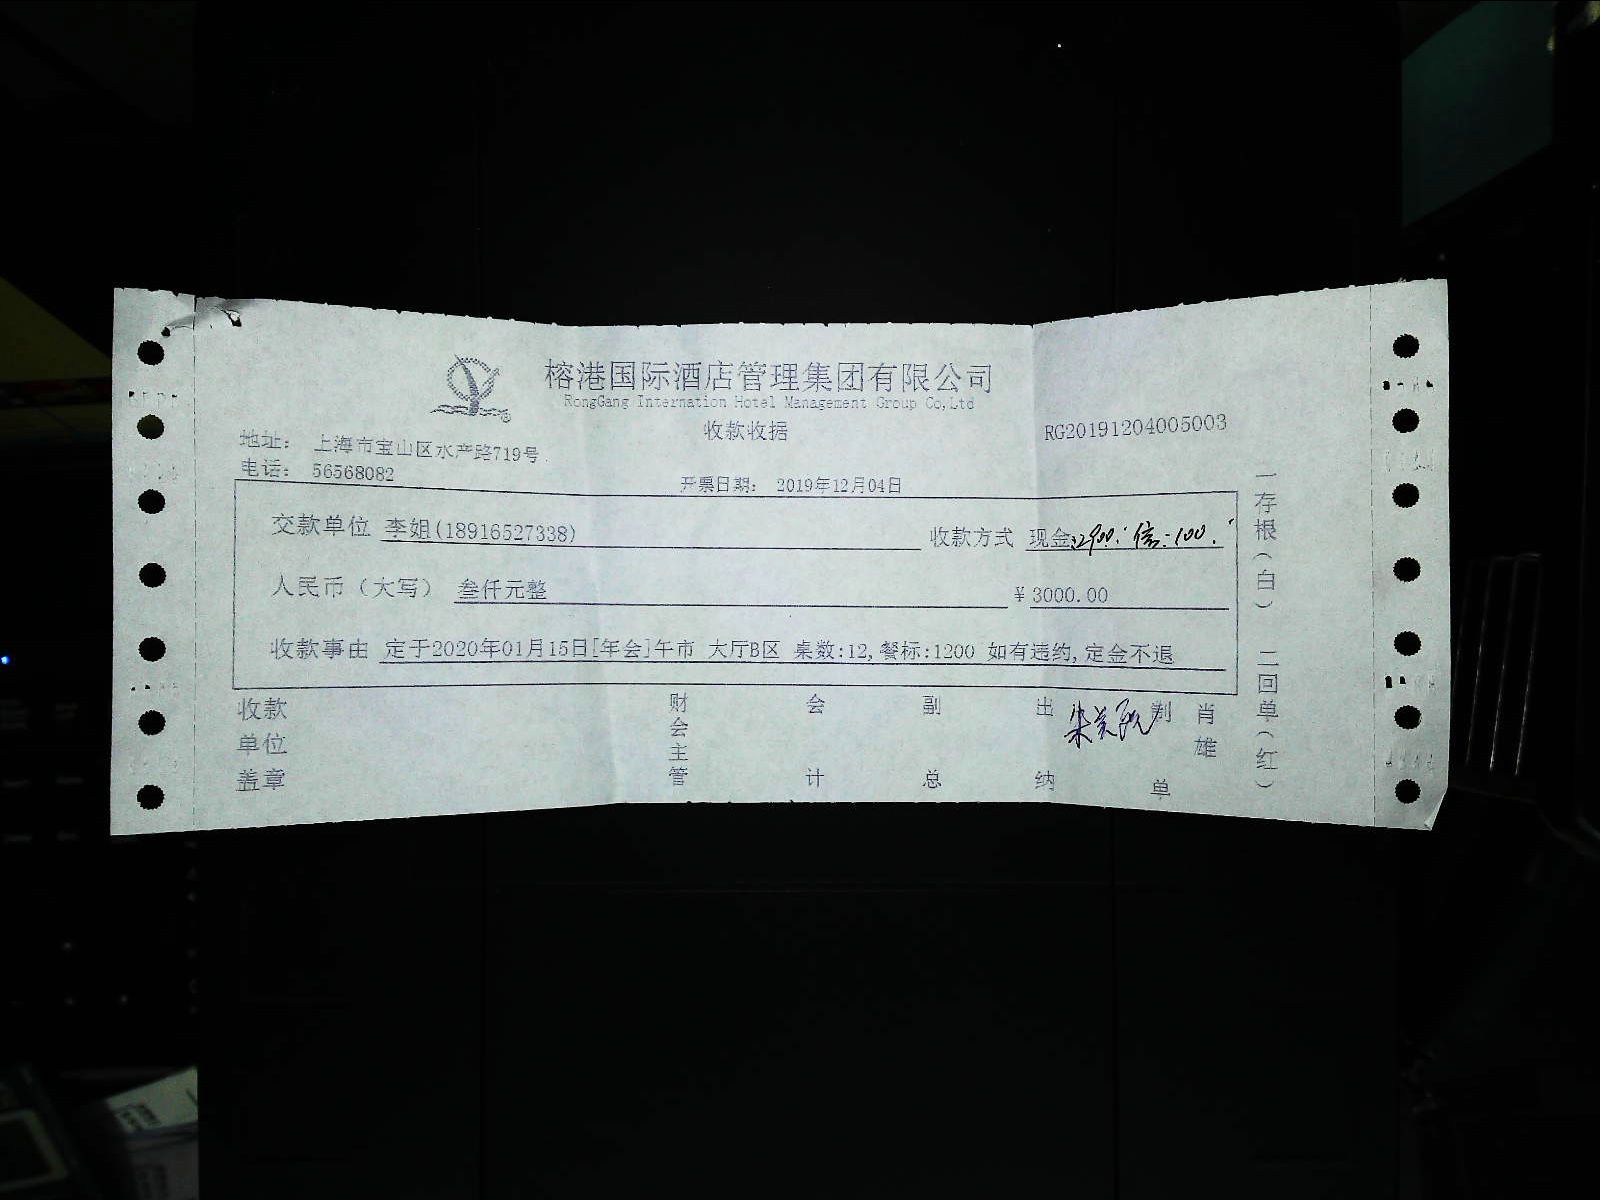 榕港国际酒店管理集团有限公司
RongGang Internation Hotel Management Group Co,Ltd
收款收据
RG20191204005003
地址： 上海市宝山区水产路719号
电话： 56568082
开票日期： 2019年12月04日
交款单位 李姐(18916527338) 收款方式 现金:2900. 信:100.
人民币（大写） 叁仟元整 ¥3000.00
收款事由 定于2020年01月15日[年会]午市 大厅B区 桌数:12,餐标:1200 如有违约,定金不退
收款单位盖章 财会主管 会计 副总 出纳 制单 肖雄
一存根（白） 二回单（红）